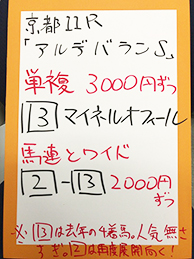 京都11R
「アルデバランS」
単複 3000円ずつ
13 マイネルオフィール
馬連とワイド
2-13 2000円
ずつ
※13は去年の4着馬。人気無
すぎ。2は再度展開向く!